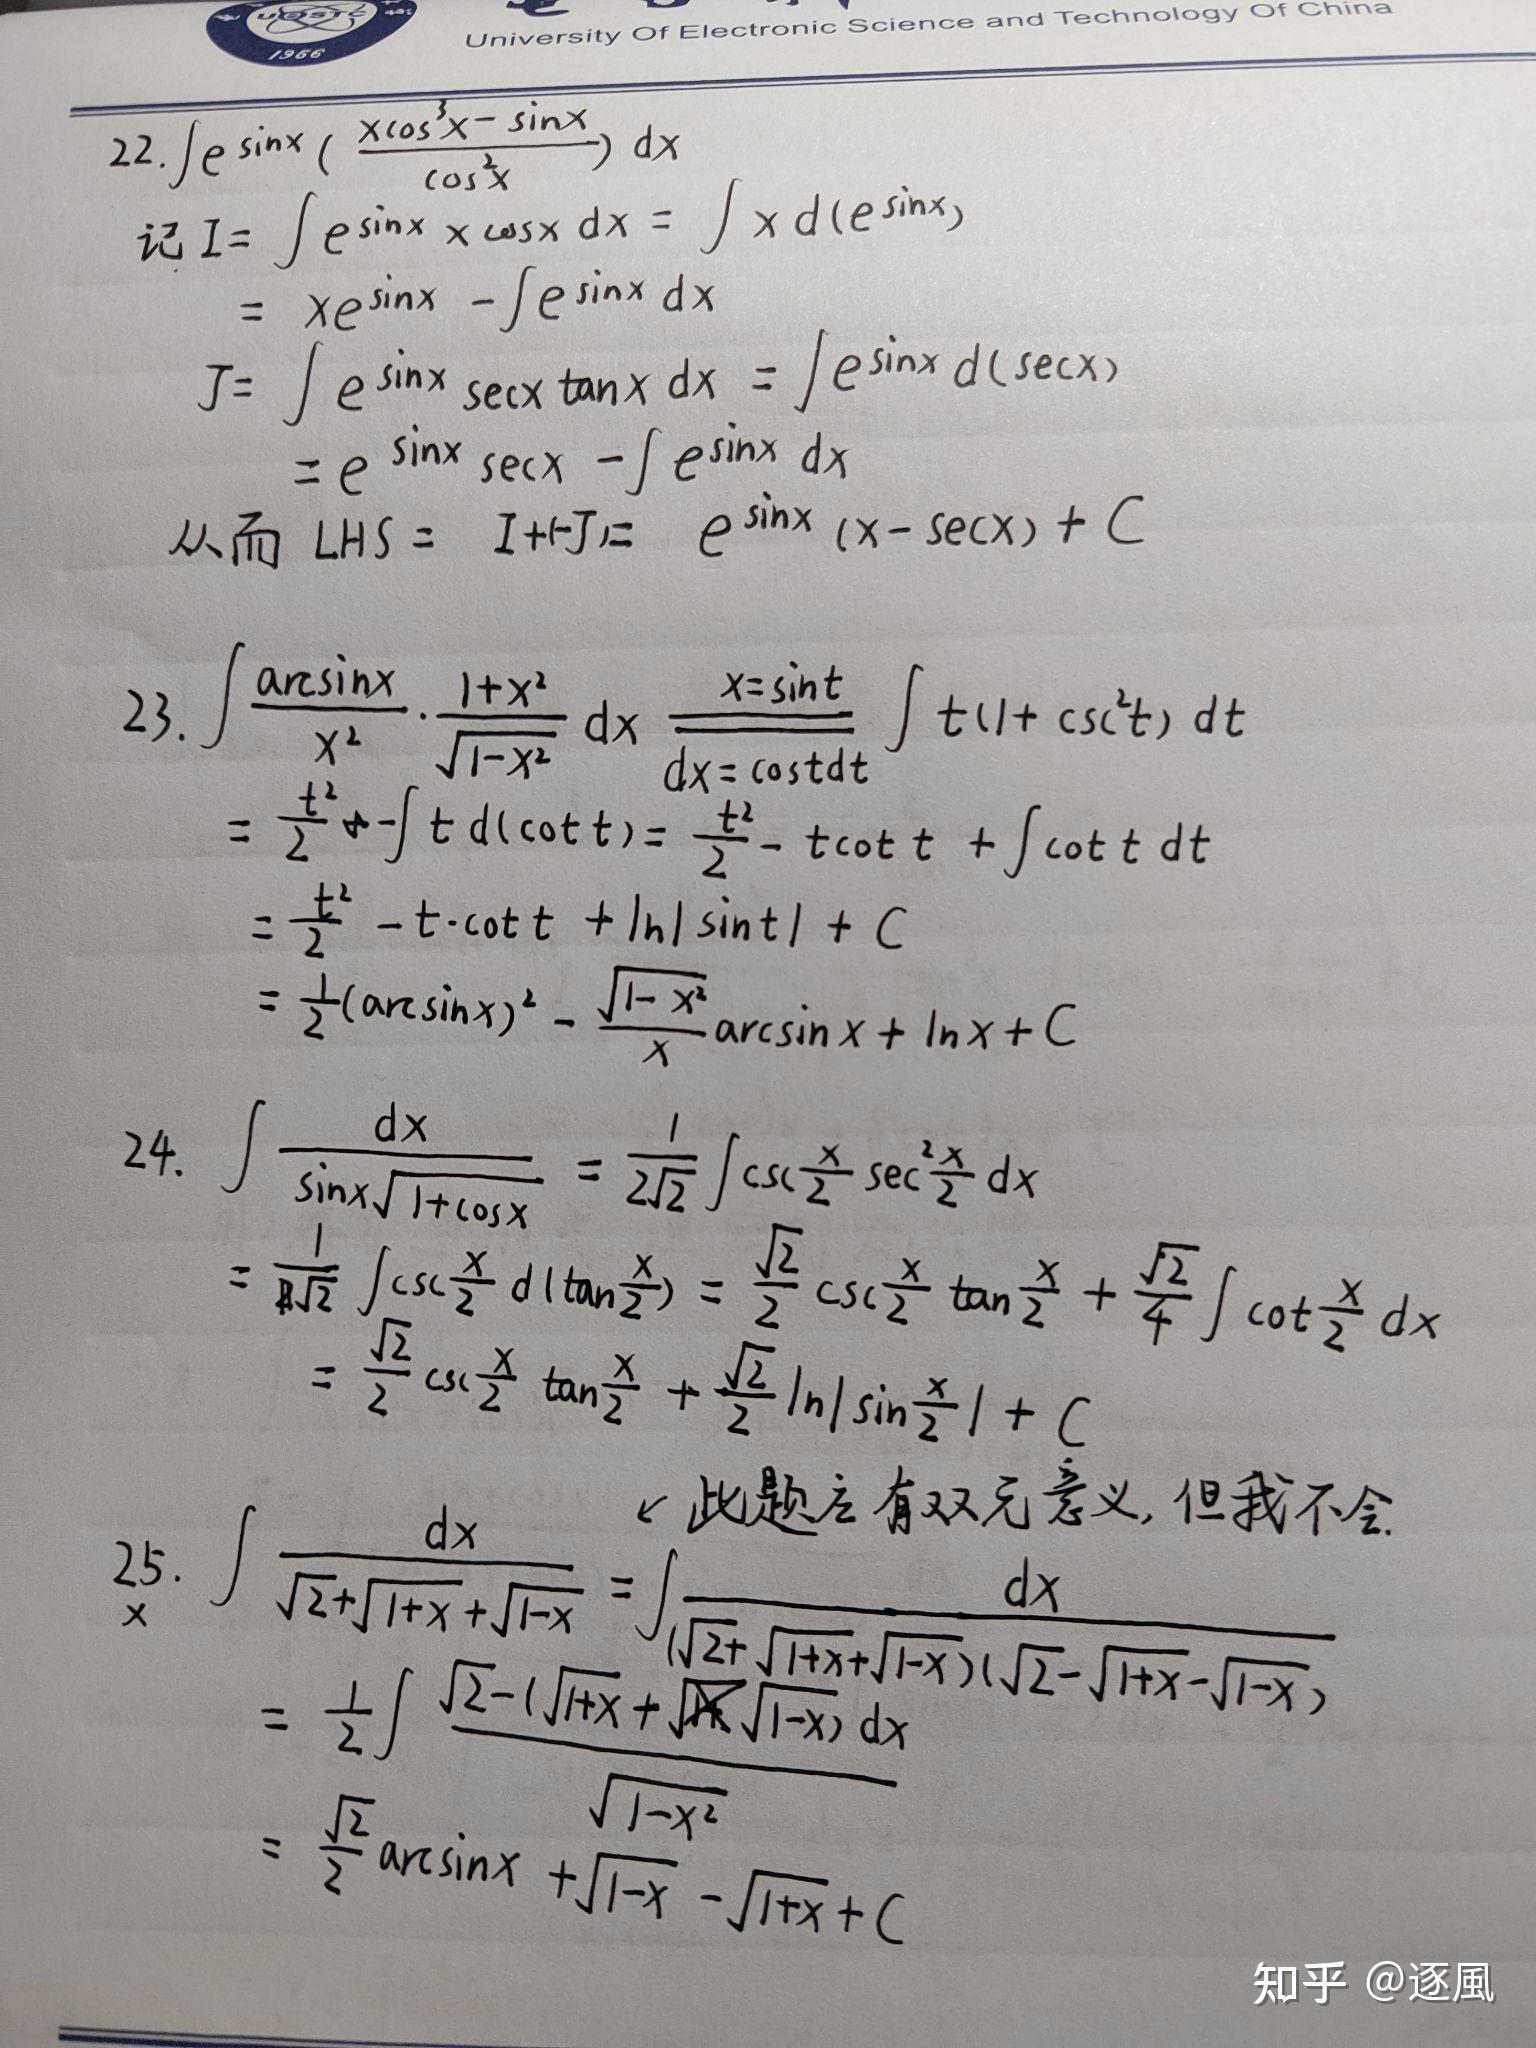 UESTC
1956
University Of Electronic Science and Technology Of China
22. ∫e^{sinx} ( (xcos³x - sinx)/(cos²x) ) dx
记 I = ∫e^{sinx} x cosx dx = ∫ x d(e^{sinx})
= xe^{sinx} - ∫e^{sinx} dx
J = ∫e^{sinx} secx tanx dx = ∫e^{sinx} d(secx)
= e^{sinx} secx - ∫e^{sinx} dx
从而 LHS = I+(-J) = e^{sinx} (x - secx) + C
23. ∫ (arcsinx)/(x²) · (1+x²)/(√(1-x²)) dx = [x=sint, dx=costdt] ∫ t(1+csc²t) dt
= t²/2 - ∫ t d(cot t) = t²/2 - tcot t + ∫cot t dt
= t²/2 - t·cot t + ln|sint| + C
= 1/2 (arcsinx)² - (√(1-x²))/x arcsinx + lnx + C
24. ∫ dx/(sinx√(1+cosx)) = 1/(2√2) ∫csc x/2 sec² x/2 dx
= 1/√2 ∫csc x/2 d(tan x/2) = √2/2 csc x/2 tan x/2 + √2/4 ∫cot x/2 dx
= √2/2 csc x/2 tan x/2 + √2/2 ln|sin x/2| + C
↙此题应有双元意义,但我不会.
25. ∫ dx/(√2+√(1+x)+√(1-x)) = ∫ dx/((√2+√(1+x)+√(1-x))(√2-√(1+x)-√(1-x)))
x
= 1/2 ∫ (√2-(√(1+x)+√(1-x)) dx)/(√(1-x²))
= √2/2 arcsinx + √(1-x) - √(1+x) + C
知乎 @逐風